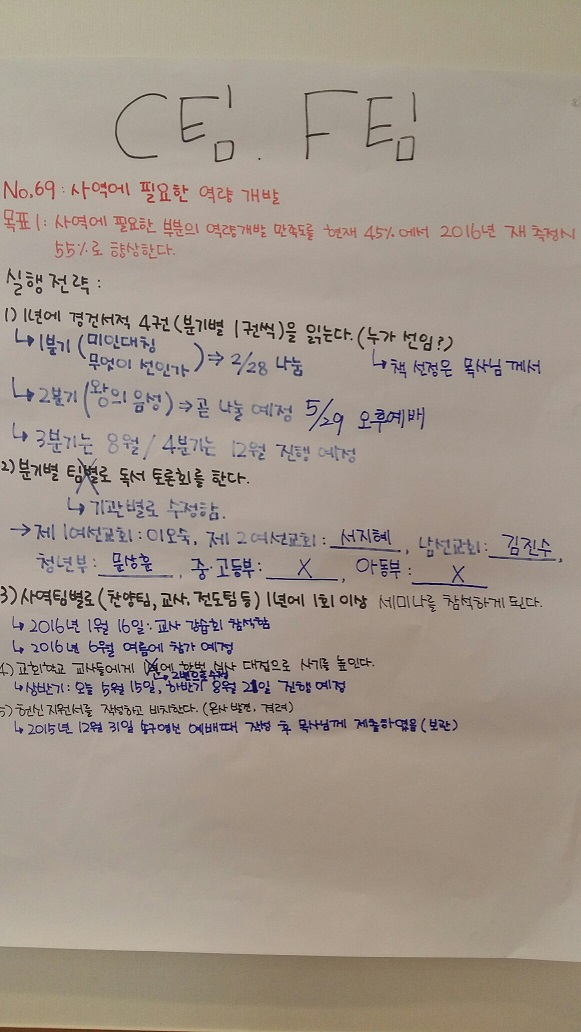 C팀. F팀
No.69 : 사역에 필요한 역량 개발
목표 1: 사역에 필요한 부분의 역량개발 만족도를 현재 45%에서 2016년 재 측정시
55%로 향상한다.
실행전략 :
1) 1년에 경건서적 4권(분기별 1권씩)을 읽는다. (누가 선임?)
↳1분기 (미인대칭 무엇이 선인가) ⇒ 2/28 나눔 ↳책 선정은 목사님께서
↳2분기 (왕의 음성) ⇒ 곧 나눌 예정 5/29 오후예배
↳3분기는 8월 / 4분기는 12월 진행 예정
2) 분기별 팀별로 독서 토론회를 한다.
↳기관별로 수정함.
→제 1여선교회 : 이오숙, 제 2여선교회 : 서지혜, 남선교회 : 김진수,
청년부 : 문상훈, 중·고등부 : X, 아동부 : X
3) 사역팀별로 (찬양팀, 교사, 전도팀 등) 1년에 1회 이상 세미나를 참석하게 된다.
↳2016년 1월 16일 : 교사 강습회 참석함
↳2016년 6월 여름에 참가 예정
4) 교회학교 교사들에게 1년에 한번 식사 대접으로 사기를 높인다.
↳2번으로 수정
↳상반기 : 오늘 5월 15일, 하반기 8월 21일 진행 예정
5) 헌신 지원서를 작성하고 비치한다. (은사 발견, 격려)
↳2015년 12월 31일 송구영신 예배때 작성 후 목사님께 제출하였음 (보관)